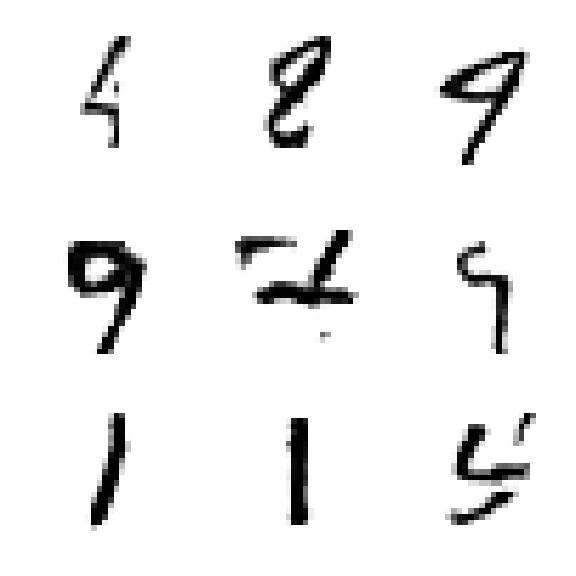 4 8 9
9 7 9
1 1 5